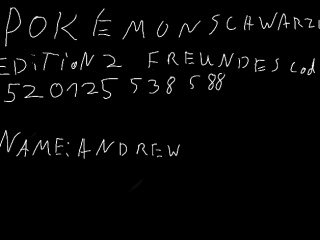 POKEMON SCHWARZE
EDITION 2 FREUNDESCod
520125 538 588
NAME: ANDREW